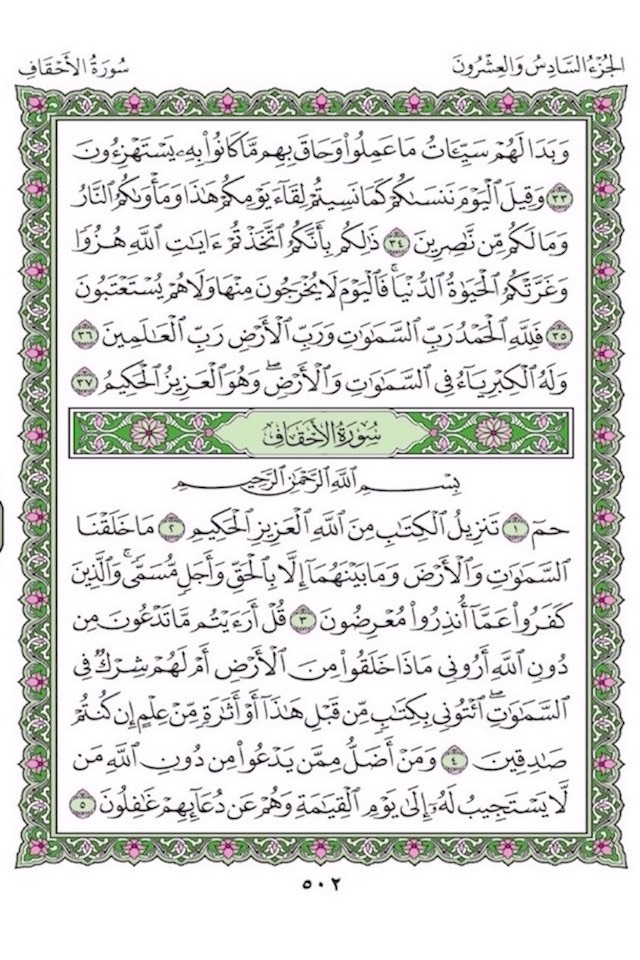 الجُزْءُ السَّادِسُ وَالعِشْرُونَ
سُورَةُ الأَحْقَافِ
وَبَدَا لَهُمْ سَيِّـَٔاتُ مَا عَمِلُوا۟ وَحَاقَ بِهِم مَّا كَانُوا۟ بِهِۦ يَسْتَهْزِءُونَ
٣٣ وَقِيلَ ٱلْيَوْمَ نَنسَىٰكُمْ كَمَا نَسِيتُمْ لِقَآءَ يَوْمِكُمْ هَٰذَا وَمَأْوَىٰكُمُ ٱلنَّارُ
وَمَا لَكُم مِّن نَّٰصِرِينَ ٣٤ ذَٰلِكُم بِأَنَّكُمُ ٱتَّخَذْتُمْ ءَايَٰتِ ٱللَّهِ هُزُوًا
وَغَرَّتْكُمُ ٱلْحَيَوٰةُ ٱلدُّنْيَا ۚ فَٱلْيَوْمَ لَا يُخْرَجُونَ مِنْهَا وَلَا هُمْ يُسْتَعْتَبُونَ
٣٥ فَلِلَّهِ ٱلْحَمْدُ رَبِّ ٱلسَّمَٰوَٰتِ وَرَبِّ ٱلْأَرْضِ رَبِّ ٱلْعَٰلَمِينَ ٣٦
وَلَهُ ٱلْكِبْرِيَآءُ فِى ٱلسَّمَٰوَٰتِ وَٱلْأَرْضِ ۖ وَهُوَ ٱلْعَزِيزُ ٱلْحَكِيمُ ٣٧
سُورَةُ الأَحْقَافِ
بِسْمِ ٱللَّهِ ٱلرَّحْمَٰنِ ٱلرَّحِيمِ
حمٓ ١ تَنزِيلُ ٱلْكِتَٰبِ مِنَ ٱللَّهِ ٱلْعَزِيزِ ٱلْحَكِيمِ ٢ مَا خَلَقْنَا
ٱلسَّمَٰوَٰتِ وَٱلْأَرْضَ وَمَا بَيْنَهُمَآ إِلَّا بِٱلْحَقِّ وَأَجَلٍ مُّسَمًّى ۚ وَٱلَّذِينَ
كَفَرُوا۟ عَمَّآ أُنذِرُوا۟ مُعْرِضُونَ ٣ قُلْ أَرَءَيْتُم مَّا تَدْعُونَ مِن
دُونِ ٱللَّهِ أَرُونِى مَاذَا خَلَقُوا۟ مِنَ ٱلْأَرْضِ أَمْ لَهُمْ شِرْكٌ فِى
ٱلسَّمَٰوَٰتِ ۖ ٱئْتُونِى بِكِتَٰبٍ مِّن قَبْلِ هَٰذَآ أَوْ أَثَٰرَةٍ مِّنْ عِلْمٍ إِن كُنتُمْ
صَٰدِقِينَ ٤ وَمَنْ أَضَلُّ مِمَّن يَدْعُوا۟ مِن دُونِ ٱللَّهِ مَن
لَّا يَسْتَجِيبُ لَهُۥٓ إِلَىٰ يَوْمِ ٱلْقِيَٰمَةِ وَهُمْ عَن دُعَآئِهِمْ غَٰفِلُونَ ٥
٥٠٢